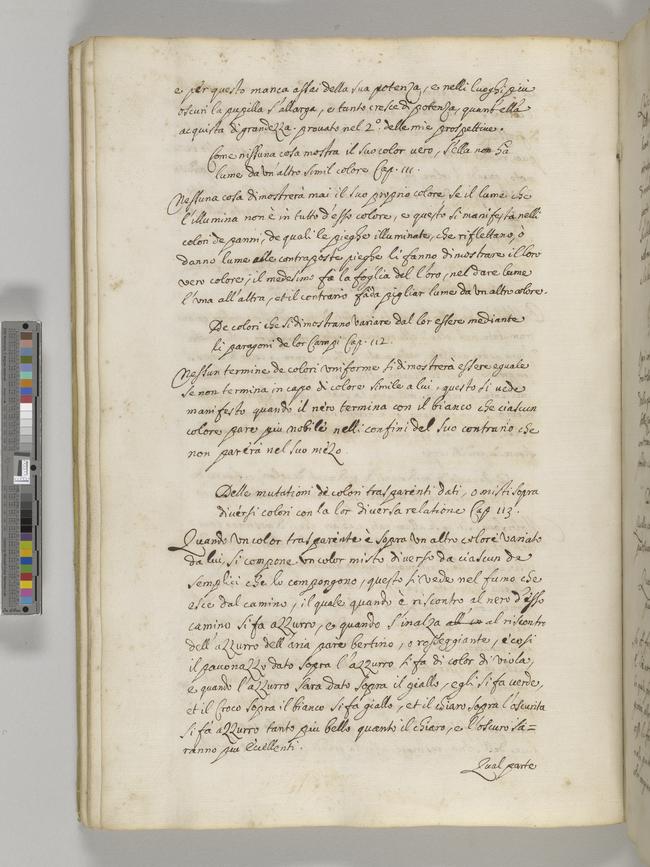 e per questo manca assai della sua potenza, e nelli luoghi piu
oscuri la pupilla s'allarga, e tanto cresce di potenza, quant'ella
acquista di grandezza. prouato nel 2.° delle mie prospettiue.
Come nissuna cosa mostra il suo color uero, s'ella non hà
lume da un'altro simil colore Cap. 111.
Nessuna cosa dimostrerà mai il suo proprio colore se il lume che
l'illumina non è in tutto d'esso colore, e questo si manifesta nelli
colori de panni, de quali le pieghe illuminate, che riflettano, ò
danno lume alle contraposte pieghe li fanno dimostrare il loro
uero colore; il medesimo fa la foglia del l'oro, nel dare lume
l'una all'altra, et il contrario fà da pigliar lume da un altro colore.
De colori che si dimostrano uariare dal lor essere mediante
li paragoni de lor Campi Cap. 112.
Nessun termine de colori uniforme si dimostrerà essere eguale
se non termina in capo di colore simile a lui, questo si uede
manifesto quando il nero termina con il bianco che ciascun
colore pare più nobile nelli confini del suo contrario che
non parerà nel suo mezo.
Delle mutationi de colori trasparenti dati, o misti sopra
diuersi colori con la lor diuersa relatione Cap. 113.
Quando un color trasparente è sopra un altro colore uariato
da lui, si compone un color misto diuerso da ciascun de
semplici che lo compongono, questo si uede nel fumo che
esce dal camino, il quale quando è riscontro al nero d'esso
camino si fa azzurro, e quando s'inalza al riscontro
dell'azzurro dell'aria pare bertino, o rosseggiante, e così
il pauonazzo dato sopra l'azzurro si fa di color di uiola,
e quando l'azzurro sarà dato sopra il giallo, egli si fa uerde,
et il Croco sopra il bianco si fà giallo, et il chiaro sopra l'oscurità
si fa azzurro tanto piu bello quanto il chiaro, e l'oscuro sa=
ranno più eccellenti.
Qual parte